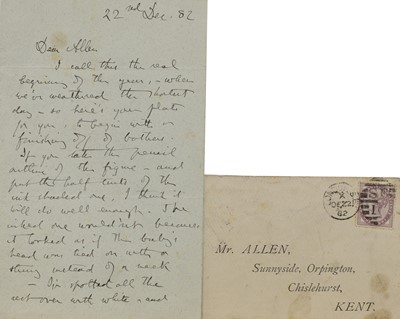 22nd Dec. 82
Dear Allen
I call this the real
beginning of the year, - when
we've weathered the shortest
day - so here's your plate
for you to begin with or
finishing off of bothers.
If you take the pencil
outline of the figure - and
put the half tints of the
ink chalked one, I think it
will do well enough. - The
inked one wouldn't because
it looked as if the baby's
head was tied on with a
string instead of a neck
- I've spotted all the
rest over with white - and
Mr. ALLEN,
Sunnyside, Orpington,
Chislehurst,
KENT.